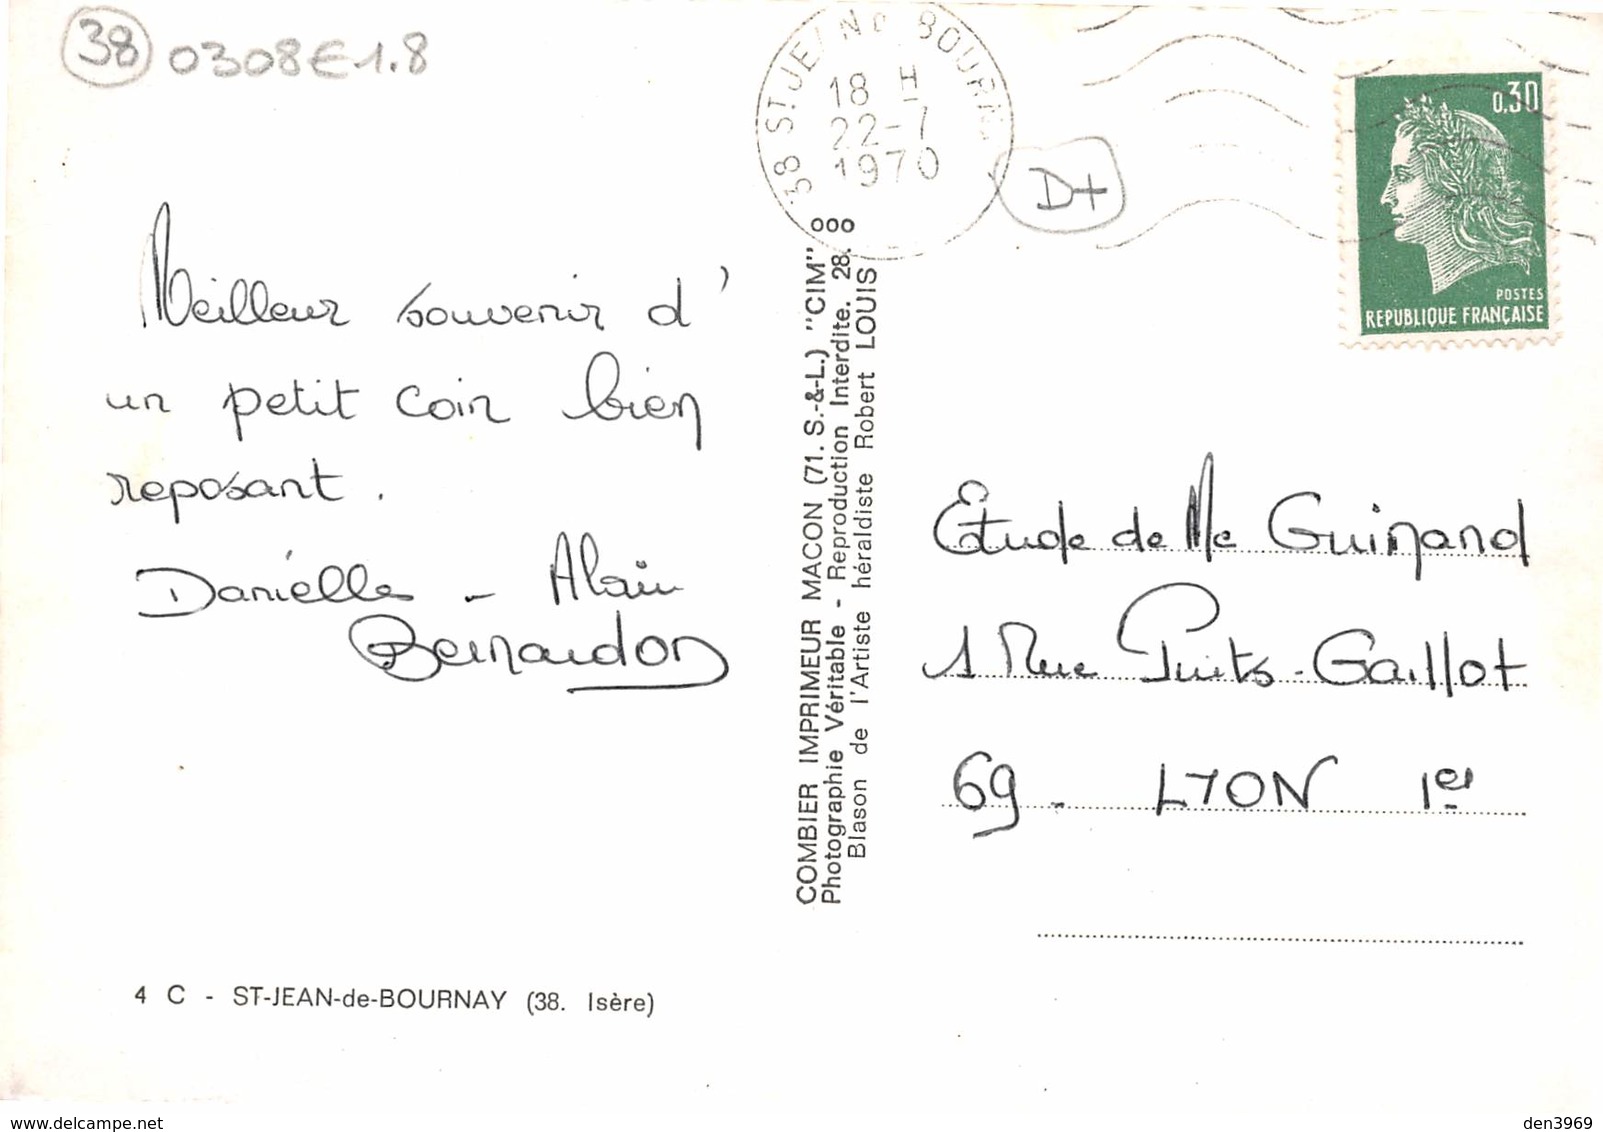 38 0308€1.8
38 ST JEAN DE BOURNAY
18 H
22-7
1970
D+
0,30
POSTES
REPUBLIQUE FRANÇAISE
Meilleur souvenir d'
un petit coin bien
reposant.
Danielle - Alain
Bernaudon
COMBIER IMPRIMEUR MACON (71. S.-&-L.) "CIM" ooo
Photographie Véritable - Reproduction Interdite. 28.
Blason de l'Artiste héraldiste Robert LOUIS
Etude de Me Guimand
1 Rue Puits-Gaillot
69 - LYON 1er
4 C - ST-JEAN-de-BOURNAY (38. Isère)
www.delcampe.net
den3969